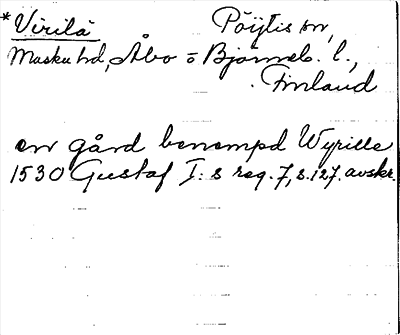 *Virilä Pöijtis sn,
Masku hd, Åbo o Björneb. l.,
Finland
en gård benempd Wyrille
1530 Gustaf I:s reg. 7, s. 127. avskr.